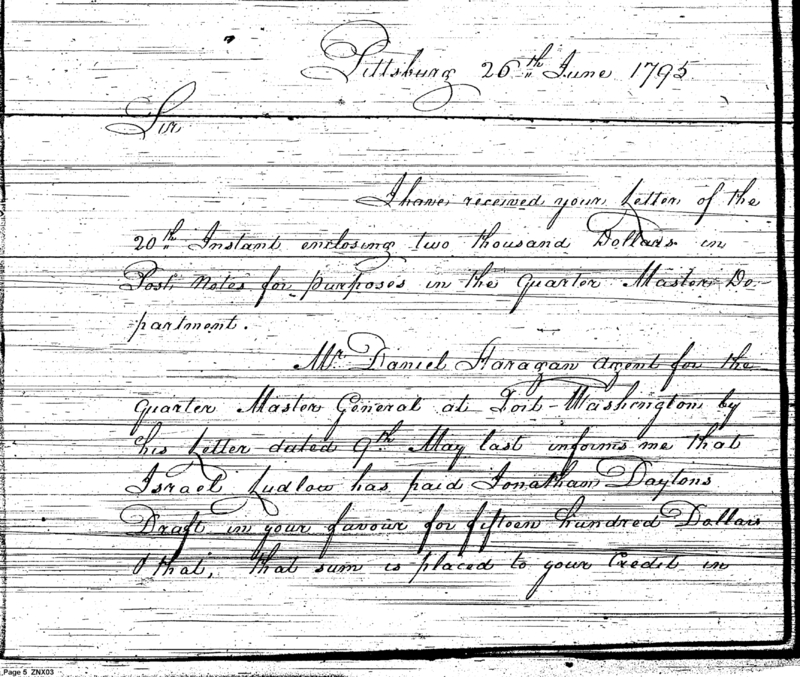 Pittsburg 26th June 1795
Sir
I have received your Letter of the
20th Instant enclosing two thousand Dollars in
Post Notes for purposes in the Quarter Master De-
partment.
Mr Daniel Faragan agent for the
Quarter Master General at Fort-Washington by
his Letter dated 9th May last informs me that
Israel Ludlow has paid Jonathan Daytons
Draft in your favour for fifteen hundred Dollars
& that, that sum is placed to your Credit in
Page 5 ZNX03